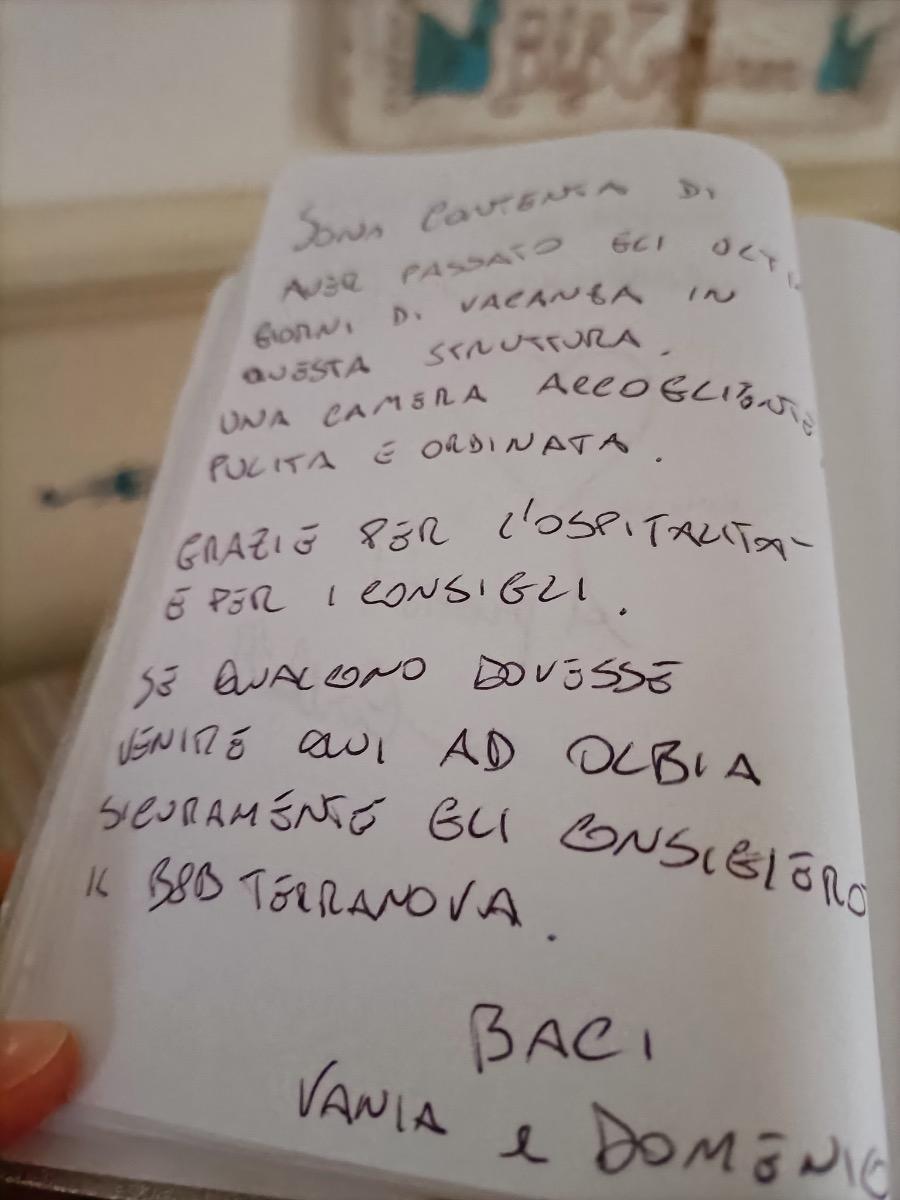 B&B Terranova
SONO CONTENTA DI
AVER PASSATO GLI ULTIMI
GIORNI DI VACANZA IN
QUESTA STRUTTURA.
UNA CAMERA ACCOGLIENTE
PULITA E ORDINATA.
GRAZIE PER L'OSPITALITA'
E PER I CONSIGLI.
SE QUALCUNO DOVESSE
VENIRE QUI AD OLBIA
SICURAMENTE GLI CONSIGLIERO
IL B&B TERRANOVA.
BACI
VANIA e DOMENIC